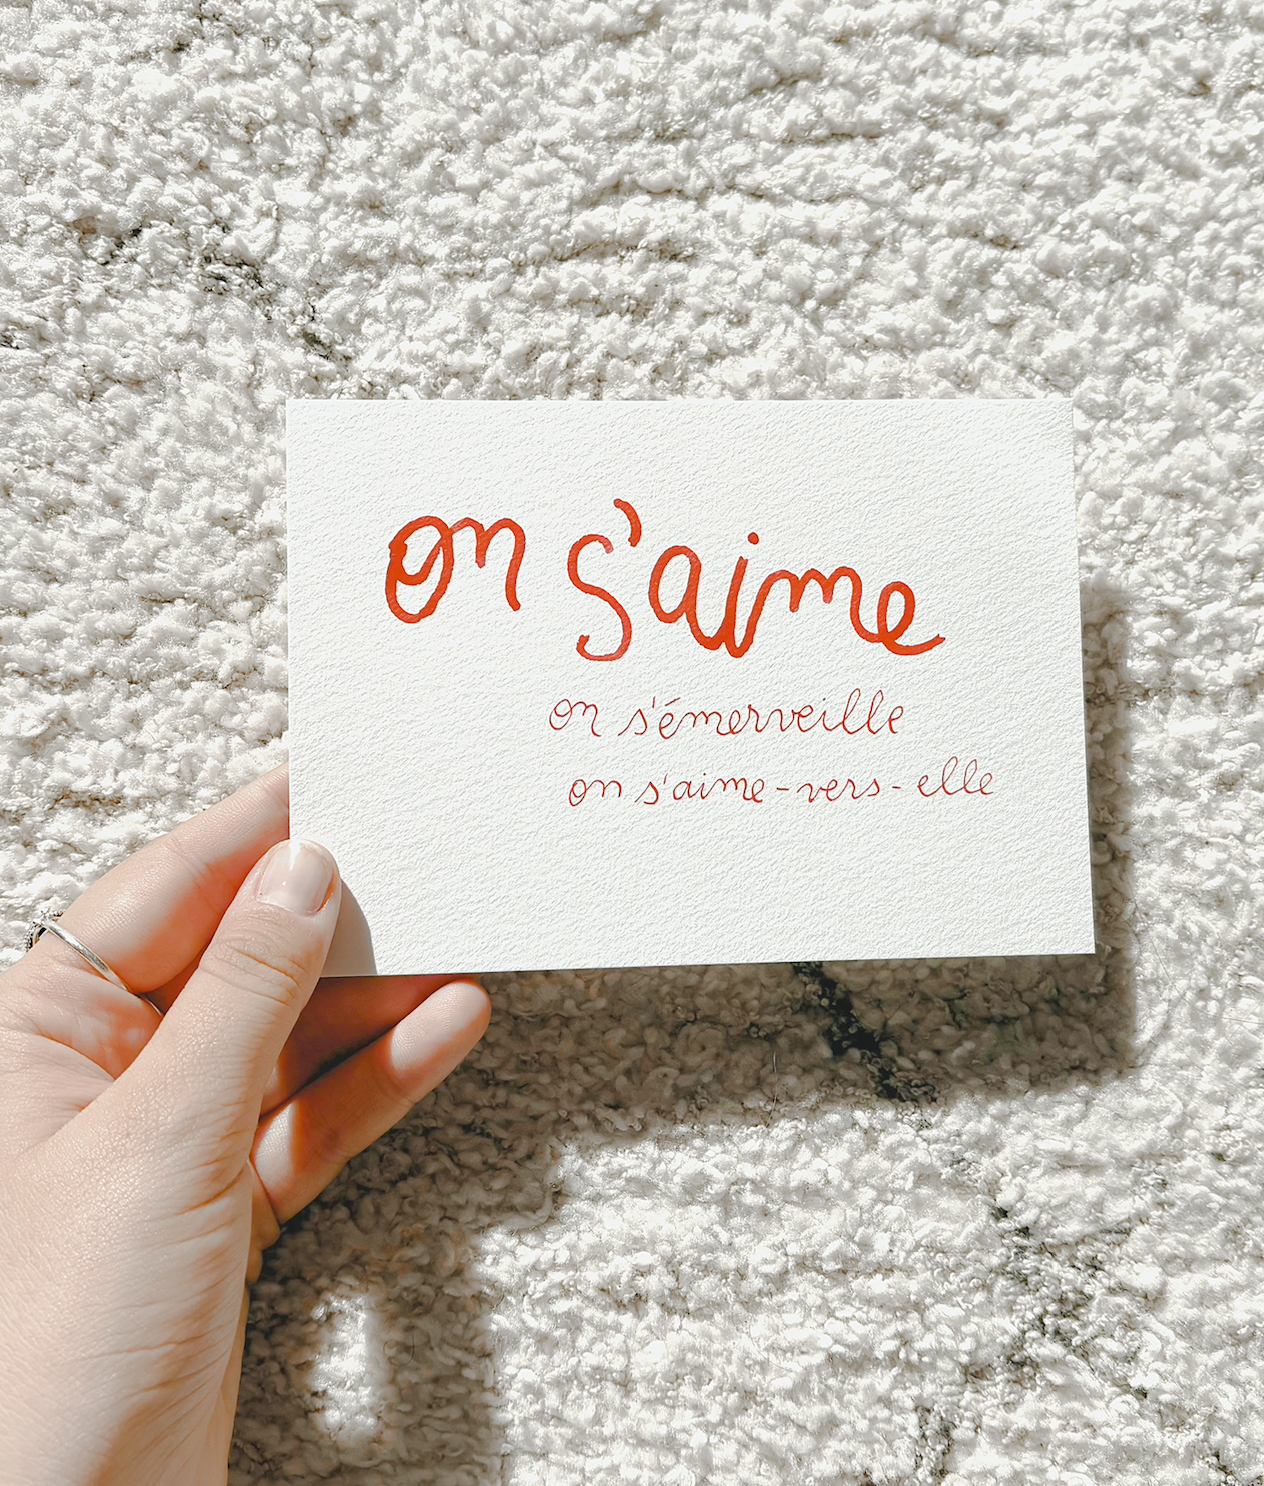 on s'aime
on s'émerveille
on s'aime-vers-elle